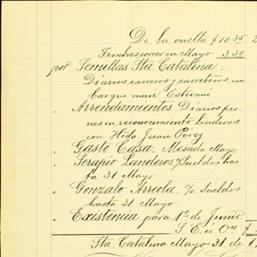 De la vuelta $10.35
Timbres correo en Mayo 3.30
por Semillas Sta Catalina:
Diarios, carreros y carreteros, em
barque maiz Estienié
" Arrendamientos Diarios, peo
nes en reconocimiento linderos
con Hcda Juan Pérez
" Gasto Casa, Mesada Mayo
" Serapio Landeros, Sueldos has
ta 31 Mayo
" Gonzalo Arreola. Sueldos
hasta 31 Mayo
" Existencia para 1º de Junio
S. E. ú O
Sta Catalina Mayo 31 de 1